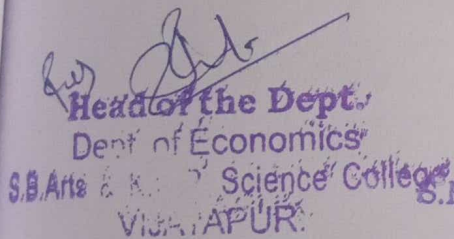 Head of the Dept.
Dept of Economics
S.B.Arts & K. Science College
VIJAYAPUR.